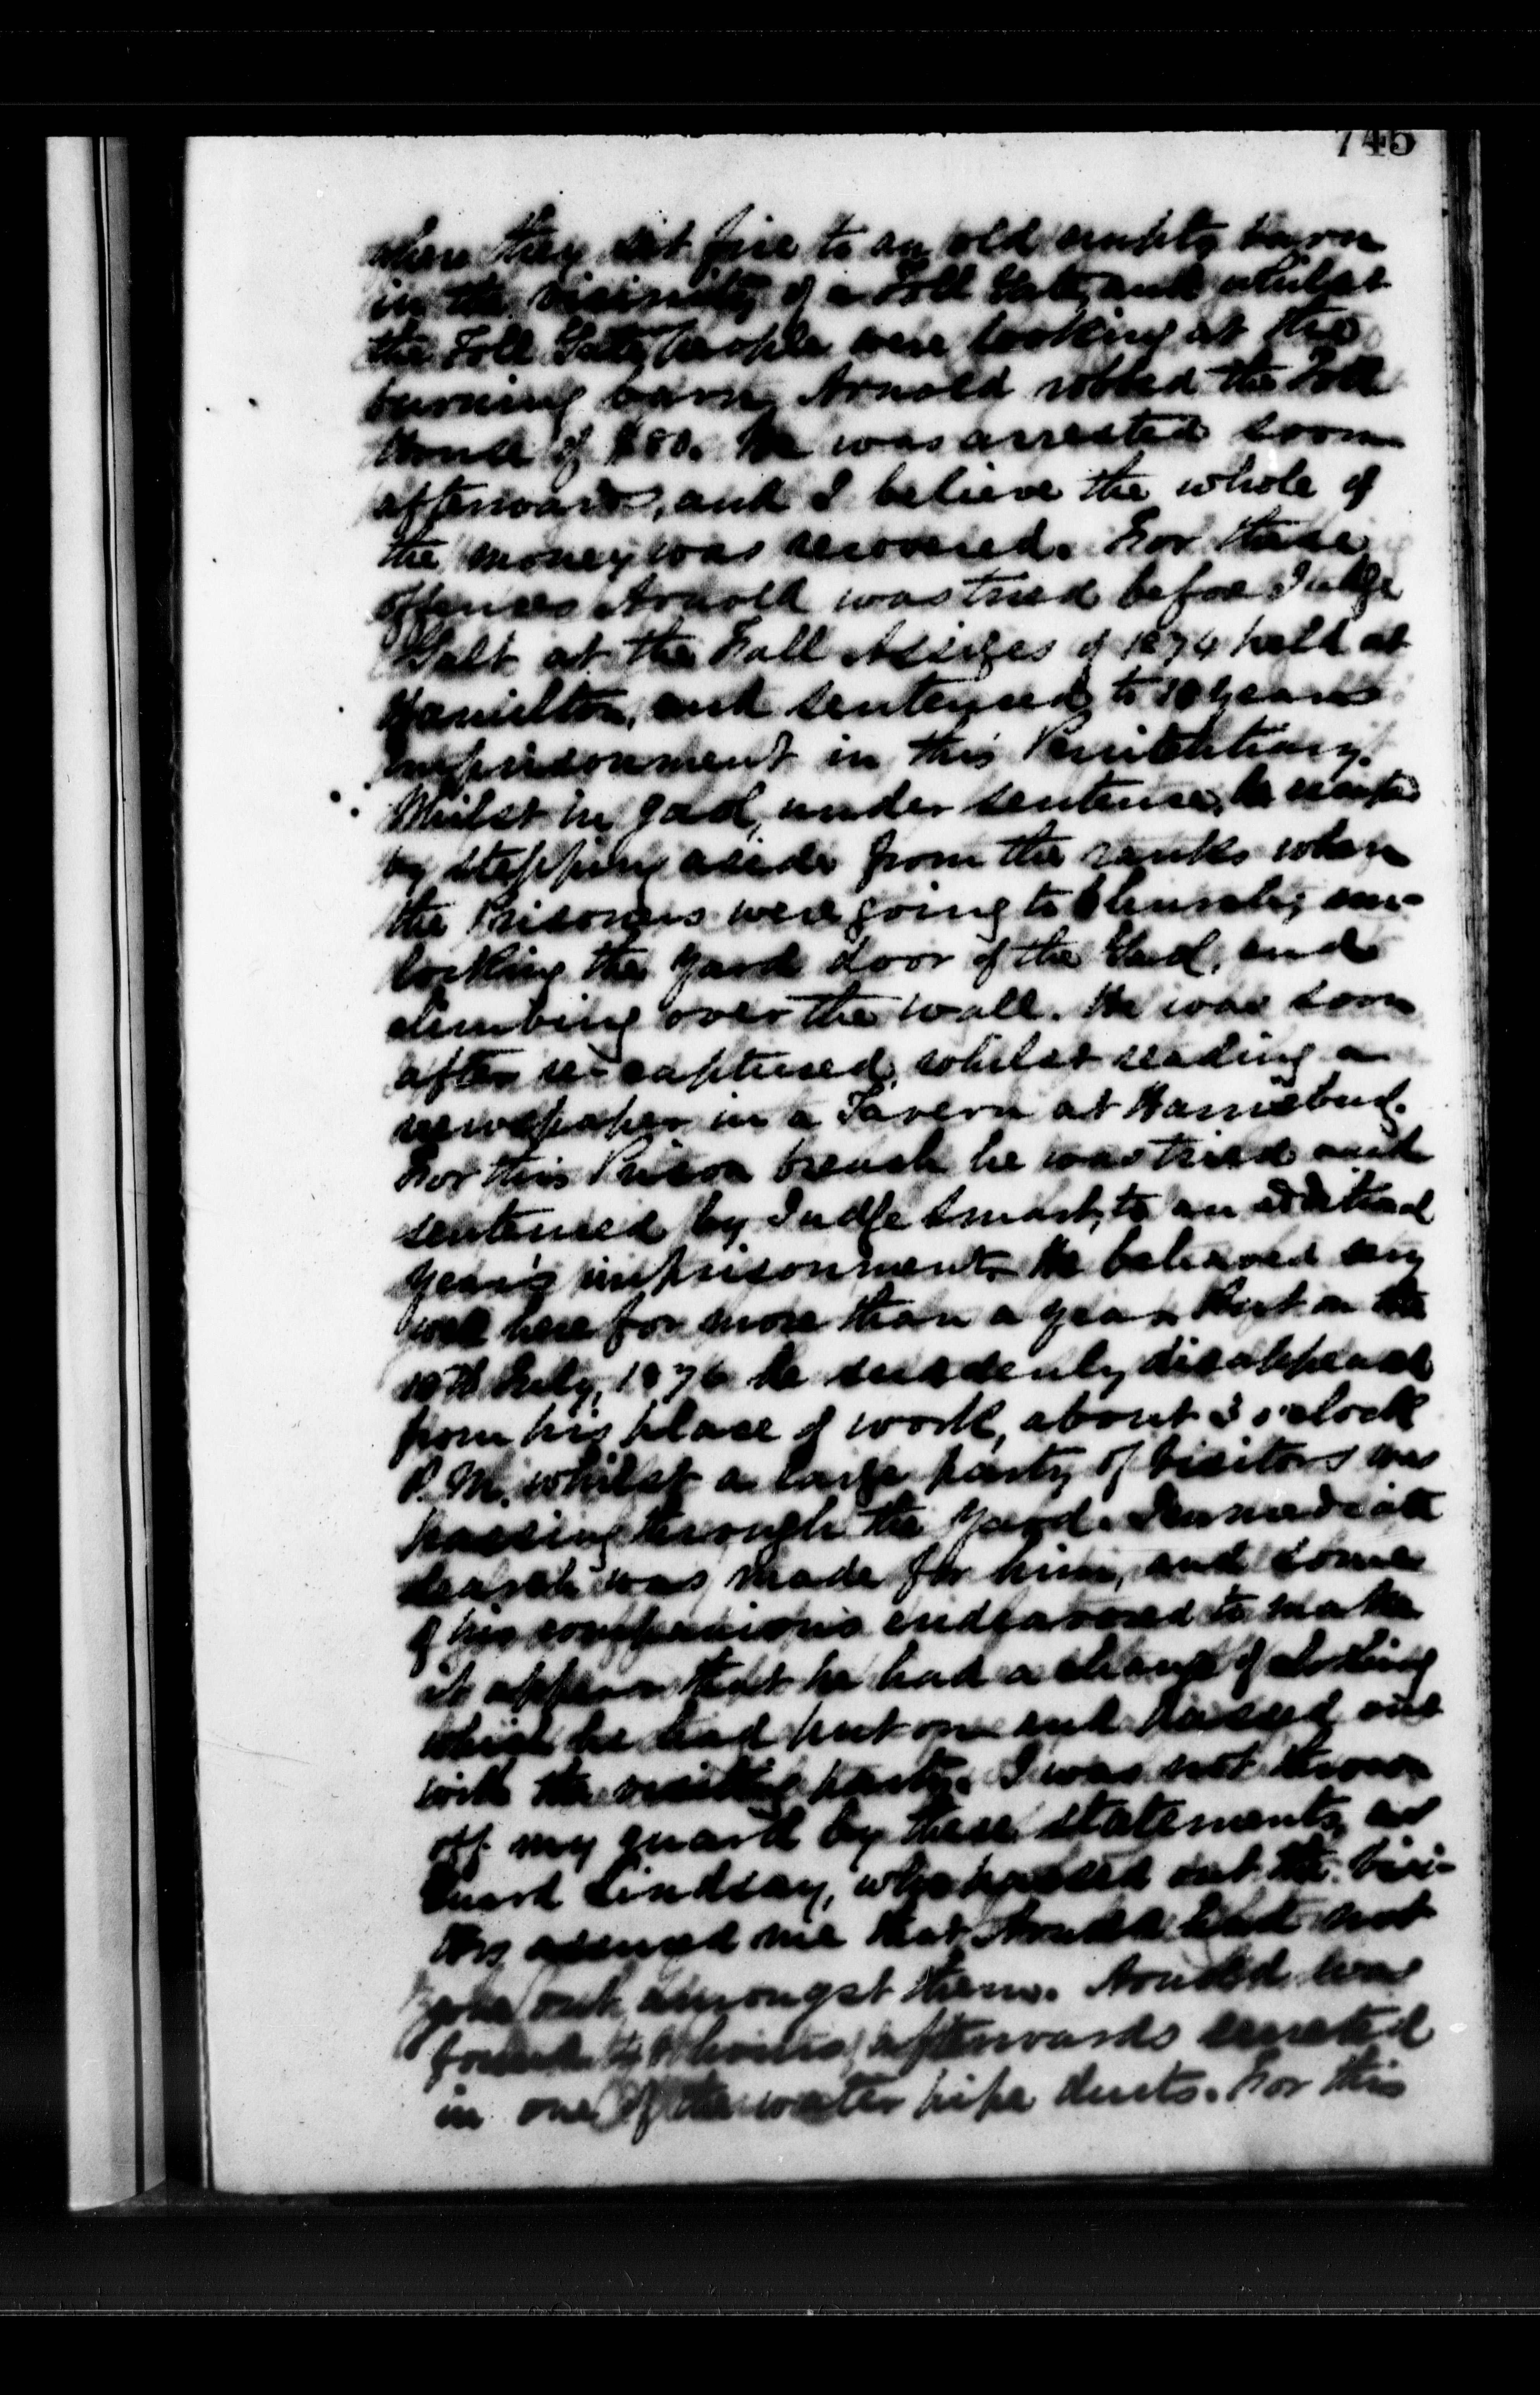 745
where they set fire to an old empty barn
in the vicinity of a Toll Gate, and whilst
the Toll Gate people were looking at the
burning barn, Arnold robbed the Toll
House of $80. He was arrested soon
afterwards, and I believe the whole of
the money was recovered. For these
offences Arnold was tried before Judge
Galt at the Fall Assizes of 1874 held at
Hamilton, and sentenced to 10 years
imprisonment in this Penitentiary.
Whilst in gaol, under sentence, he escaped
by stepping aside from the ranks when
the Prisoners were going to un-
locking the yard door of the Gaol, and
climbing over the wall. He was soon
after re-captured, whilst reading a
newspaper in a Tavern at
For this Prison breach he was tried and
sentenced by Judge to an additional
year's imprisonment. He behaved very
well here for more than a year. But on the
10th July, 1876 he suddenly disappeared
from his place of work, about 3 o'clock
P.M. whilst a large party of visitors was
passing through the yard. Immediate
search was made for him, and some
of his companions endeavored to make
it appear that he had a change of clothing
which he had put on and passed out
with the visiting party. I was not thrown
off my guard by these statements, as
Guard Lindsay, who passed out the visi-
tors assured me that Arnold had not
gone out amongst them. Arnold was
found afterwards secreted
in one of the water pipe ducts. For this